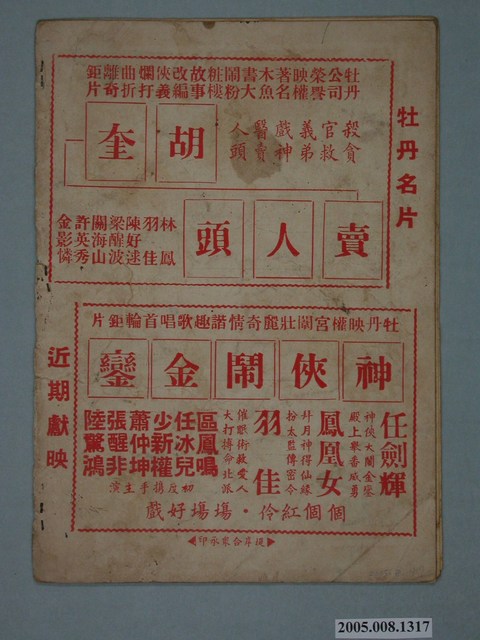 牡丹名片
牡丹公司榮譽映權著名木魚書大鬧粉粧樓故事改編俠義爛打曲折離奇鉅片
殺官義戲醫人
貪救弟神賣頭
胡奎
賣人頭
林鳳
羽佳
陳好逑
梁醒波
關海山
許英秀
金影憐
近期獻映
牡丹映權宮闈壯麗奇情諧趣歌唱首輪鉅片
神俠鬧金鑾
任劍輝
神俠大鬧金鑾
殿上聚香威勇
鳳凰女
拜月神得仙緣
扮太監傳密令
羽佳
催眠術救愛人
大打搏命北派
區鳳鳴
任冰兒
少新權
蕭仲坤
張醒非
陸驚鴻
初反携手主演
個個紅伶・塲塲好戲